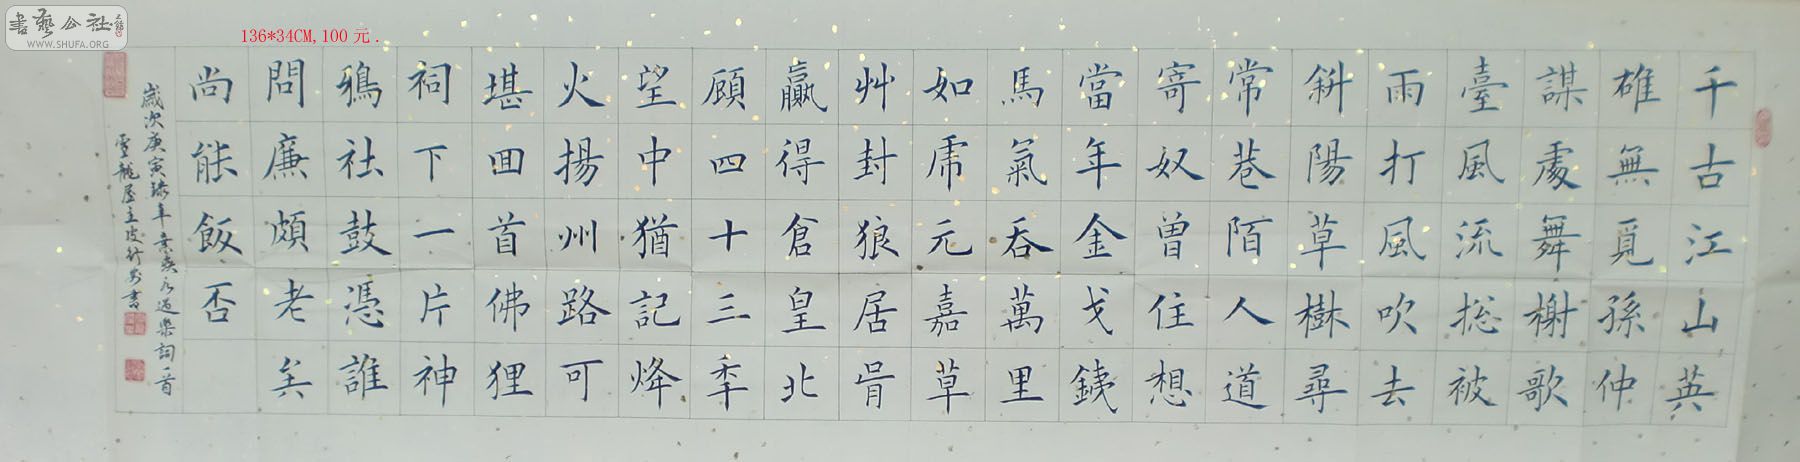 書藝公社
WWW.SHUFA.ORG
136*34CM,100元.
千古江山英
雄無覓孫仲
謀處舞榭歌
臺風流捴被
雨打風吹去
斜陽草樹尋
常巷陌人道
寄奴曾住想
當年金戈銕
馬氣吞萬里
如虎元嘉草
艸封狼居胥
贏得倉皇北
顧四十三秊
望中猶記烽
火揚州路可
堪回首佛狸
祠下一片神
鴉社鼓憑誰
問廉頗老矣
尚能飯否
歲次庚寅年辛棄疾永遇樂詞一首
屋主書